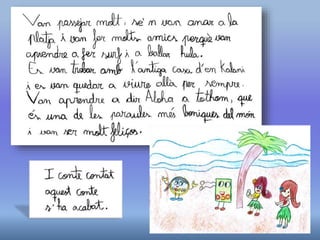 Van passejar molt, se'n van anar a la
platja i van fer molts amics perquè van
aprendre a fer surf i a ballar hula.
Es van trobar amb l'antiga casa d'en Kalani
i es van quedar a viure allà per sempre.
Van aprendre a dir Aloha a tothom, que
és una de les paraules més boniques del món
i van ser molt feliços.
I conte contat
aquest conte
s'ha acabat.